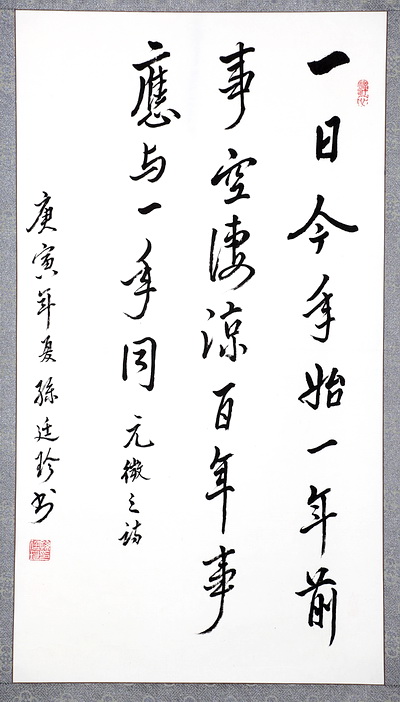 一日今年始一年前
事空淒涼百年事
應与一年同元微之詩
庚寅年夏孫廷珍书